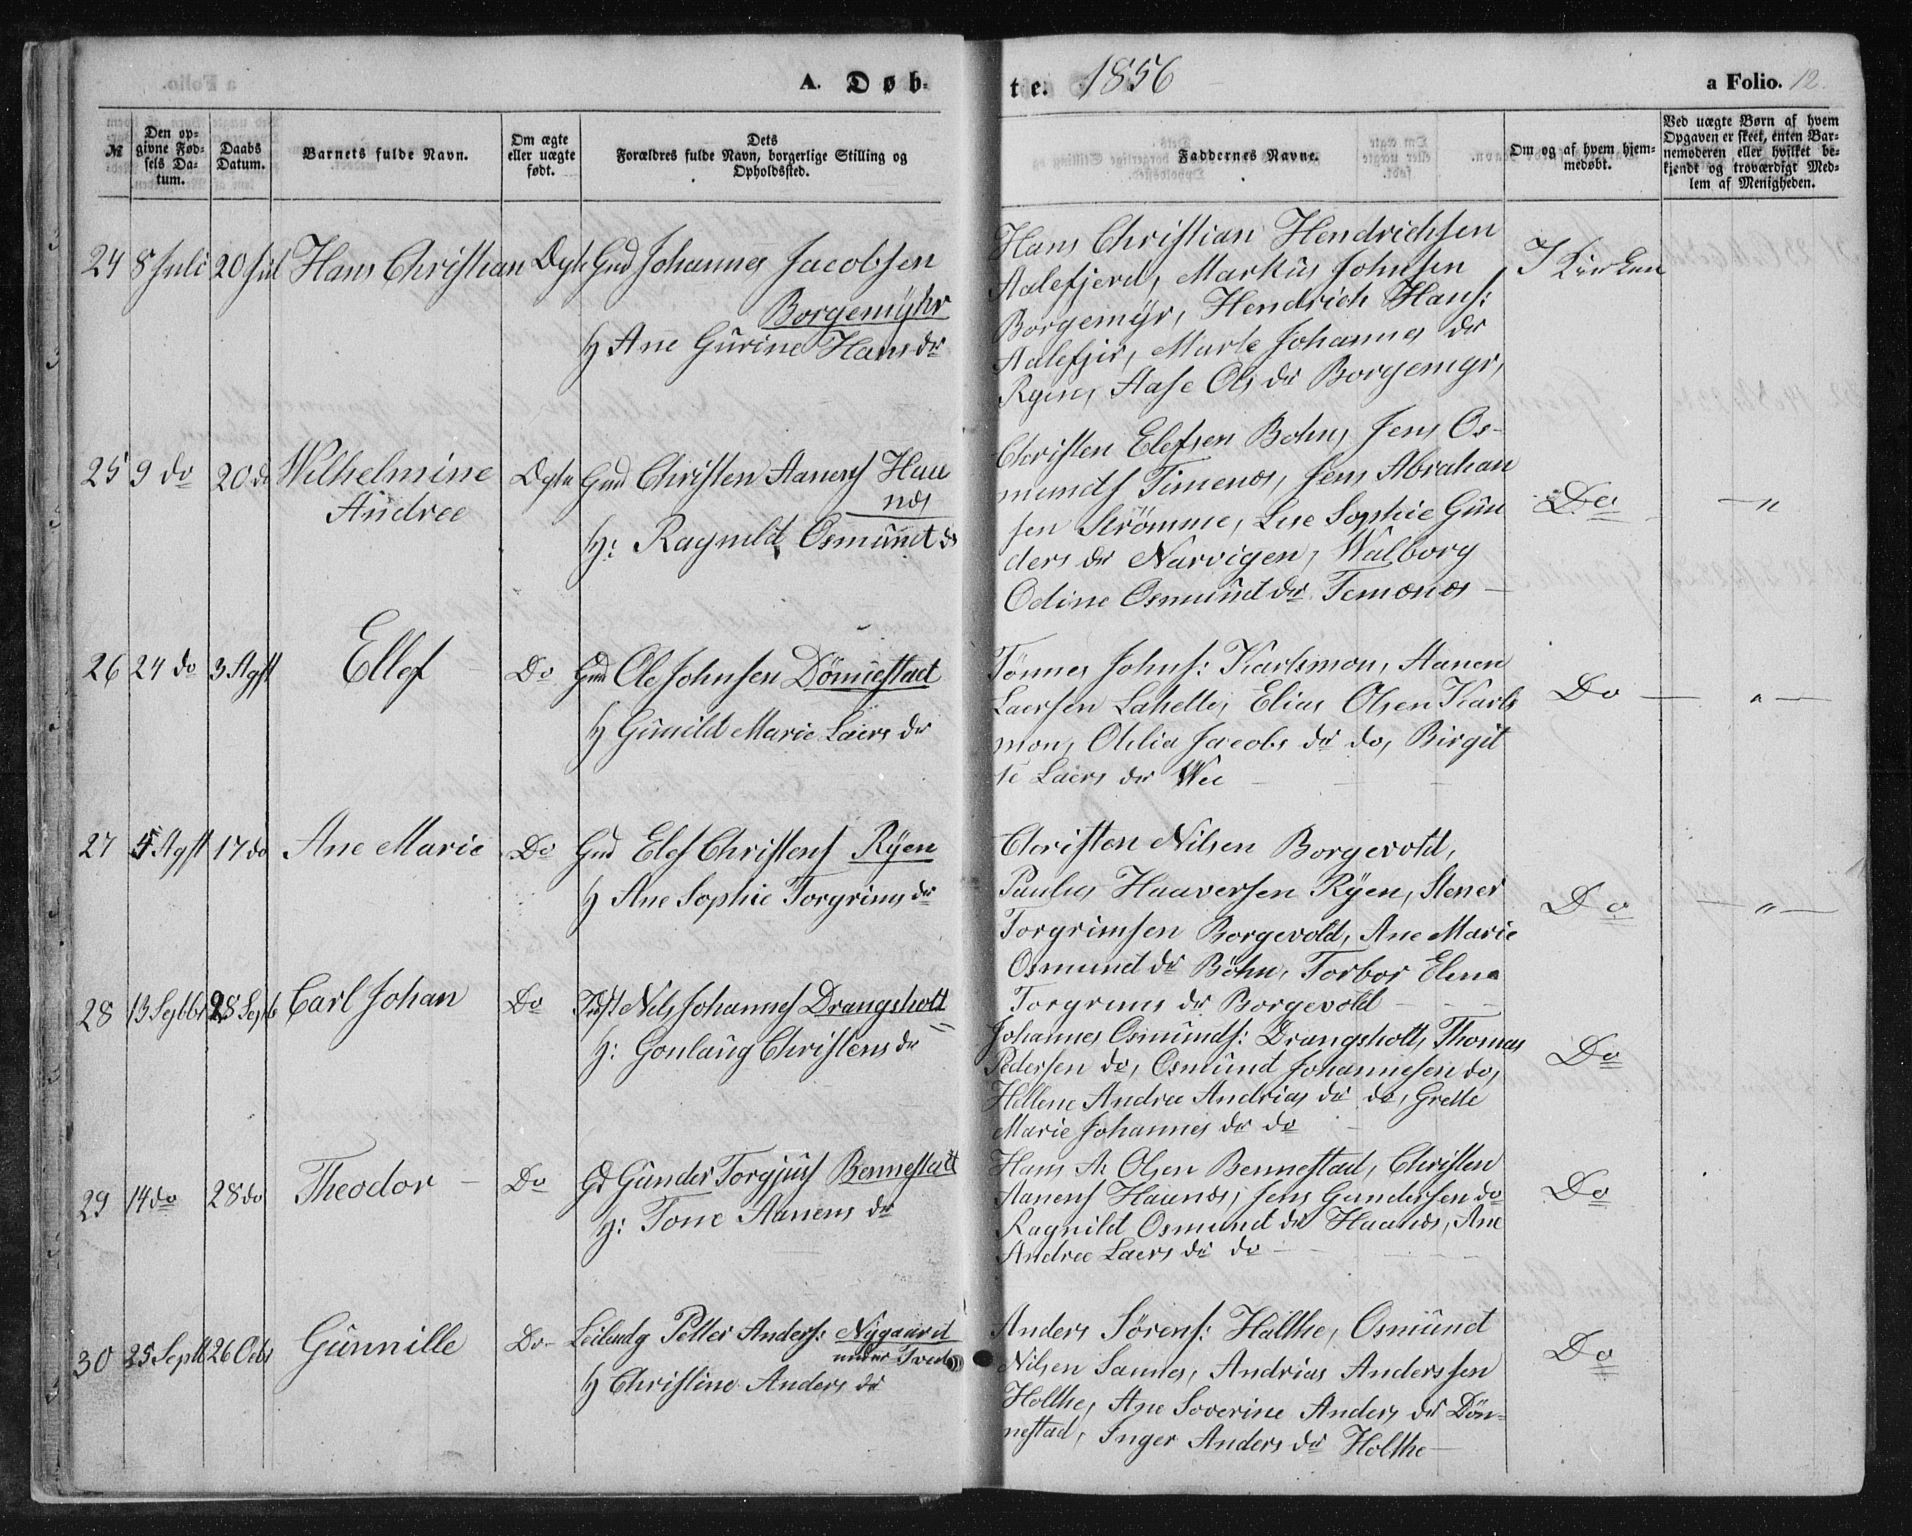 A. Døb-
te. 1856
a Folio. 12.
№
Den op-
givne Fød-
sels Da-
tum.
Daabs
Datum.
Barnets fulde Navn.
Om ægte
eller uægte
født.
Dets
Forældres fulde Navn, borgerlige Stilling og
Opholdssted.
Faddernes Navne.
Om og af hvem hjem-
medøbt.
Ved uægte Børn af hvem
Opgaven er skeet, enten Bar-
nemoderen eller hvilket be-
kjendt og troværdigt Med-
lem af Menigheden.
24 8 Juli 20 Jul Hans Christian Ægte Gmd Johannes Jacobsen
Borgemyhr
H Ane Gurine Hans dr
Hans Christian Hendrichsen
Aalefjerd, Markus Johnsen
Borgemyr, Hendrich Hans:
Aalefjer, Marte Johannes dr
Ryen, Aase Ols dr Borgemyr,
I Kirken
25 9 do 20 do Wilhelmine
Andrea
Ægte Gmd Christen Aanens Hau
næs
H: Ragnild Osmund dr
Christen Elefsen Bohn, Jens Os-
munds Timenes, Jens Abraham
sen Strømme, Lise Sophie Gun
ders dr Narvigen, Walborg
Odine Osmund dr Temenæs -
Do - "
26 24 do 3 Agst Ellef Do Gmd Ole Johnsen Dønnestad
H Gunild Marie Laers dr
Tønnes Johns: Karlsmon, Aanen
Laersen Lahelle, Elias Olsen Karls
mon, Otelia Jacobs dr do, Birgit
te Laers dr Wee
Do - " -
27 5 Agst 17 do Ane Marie Do Gmd Elef Christens Ryen
H Ane Sophie Torgrims dr
Christen Nilsen Borgevold,
Paulus Haaversen Ryen, Stener
Torgrimsen Borgevold, Ane Marie
Osmund dr Bøhn, Torbor Elene
Torgrims dr Borgevold
Do - " -
28 13 Septbr 28 Septb Carl Johan Do Nils Johannes Drangsholt
H: Gonlaug Christens dr
Johannes Osmunds: Drangsholt, Thomas
Pedersen do, Osmund Johannesen do,
Hellene Andrea Andrias dr do, Grette
Marie Johannes dr do
Do
29 14 do 28 do Theodor - Do Gd Gunder Torgjus Bennestad
H: Tone Aanens dr
Hans A. Olsen Bennestad, Christen
Aanens Haunæs, Jens Gundersen do
Ragnild Osmund dr Haanæs, Ane
Andrea Laers dr do
Do
30 25 Septb 26 Octbr Gunnille Do - Leilndg Petter Anders: Nygaard
under Tved
H Christine Anders dr
Anders Sørens: Holthe, Osmund
Nilsen Sannes, Andrias Anderssen
Holthe, Ane Soverine Anders dr Døn-
nestad, Inger Anders dr Holthe -
Do